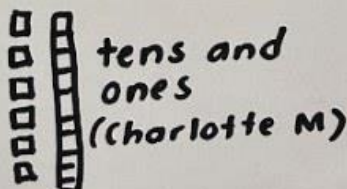 tens and
ones
(Charlotte M)